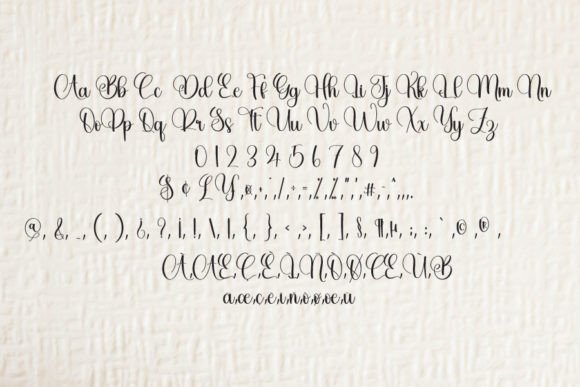 Aa Bb Cc Dd Ee Ff Gg Hh Ii Jj Kk Ll Mm Nn
Oo Pp Qq Rr Ss Tt Uu Vv Ww Xx Yy Zz
0 1 2 3 4 5 6 7 8 9
$ ¢ £ Y
@, &, _, (, ), ¿, ?, ¡, !, \, |, {, }, <, >, [, ], §, ¶, µ, ;, :, `, ©, ® ,
A, Æ, Ç, E, I, N, O, Ø, Œ, U, B
a, æ, ç, e, ı, n, o, ø, œ, u